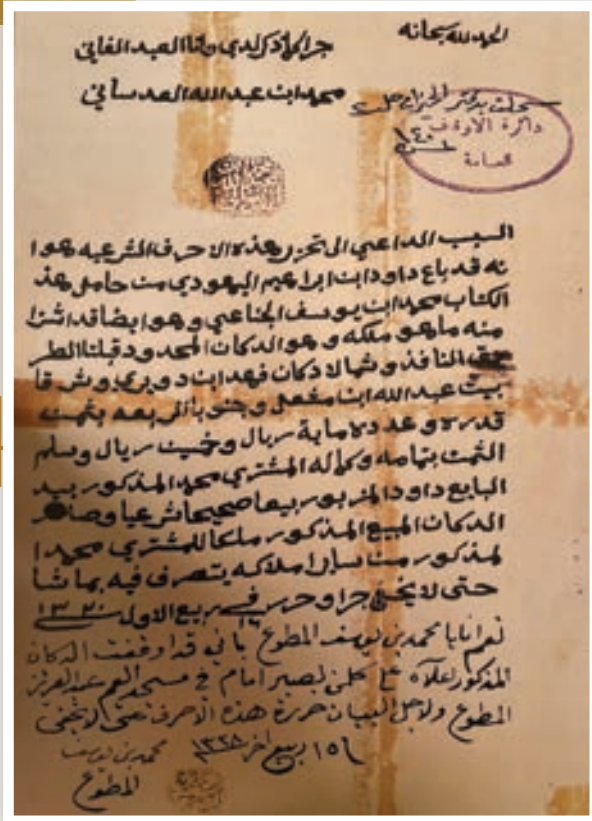 الحمد لله سبحانه
جرا كما ذكر لدي وانا العبد الفاني
محمد ابن عبدالله العدساني
سجلت بدفتر الخزانه
دائرة الاوقاف
العامة
السبب الداعي الى تحرير هذه الاحرف الشرعيه هوا
نه قد باع داود ابن ابراهيم اليهودي من حامل هذ
الكتاب محمد ابن يوسف الجناعي وهو ايضا قد اشترا
منه ماهو ملكه وهو الدكان المحدود قبلتا الطر
يق النافذ وشمالا دكان فهد ابن دويري وشرقا
بيت عبدالله ابن مشعل وجنوبا الربعه بثمن
قدره وعدده ماية ريال وخمسين ريال وسلم
الثمن بتمامه وكماله المشتري محمد المذكور بيد
البايع داود المزبور بيعا صحيحا شرعيا وصار
الدكان المبيع المذكور ملكا للمشتري محمد ا
لمذكور من ساير املاكه يتصرف فيه بما شا
حتى لا يخفى جرا وحرر في ١٢ ربيع الاول سنة ١٣٢٠
نعم انا يا محمد بن يوسف المطوع باني قد اوقفت الدكان
المذكور اعلاه على كلمن يصير امام في مسجد العم عبدالعزيز
المطوع ولاجل البيان حررة هذه الاحرف حتى لا يخفى
١٥ ربيع اخر ١٣٢٨
محمد بن يوسف
المطوع